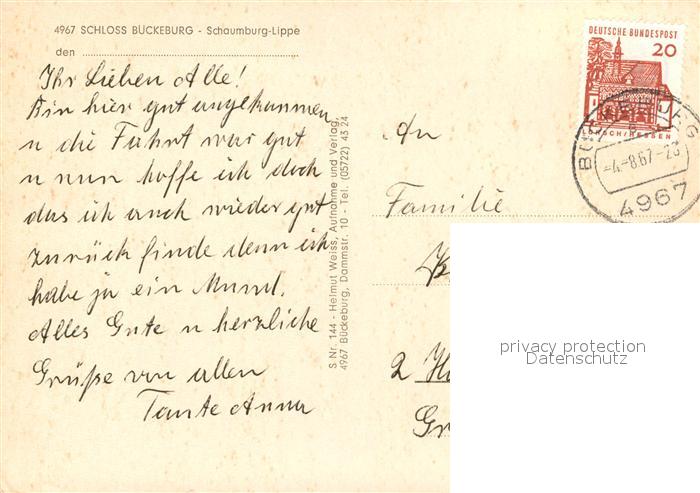 4967 SCHLOSS BÜCKEBURG - Schaumburg-Lippe
den
Ihr Lieben Alle!
Bin hier gut angekommen
u die Fahrt war gut
u nun hoffe ich doch
das ich auch wieder gut
zurück finde denn ich
habe ja ein Mund.
Alles Gute u herzliche
Grüße von allen
Tante Anna
S Nr. 144 - Helmut Weiss, Aufnahme und Verlag,
4967 Bückeburg, Dammstr. 10 - Tel. (05722) 45 24
DEUTSCHE BUNDESPOST
20
BÜCKEBURG
-4.-8.67-23
4967
An
Familie
2
Gr
privacy protection
Datenschutz